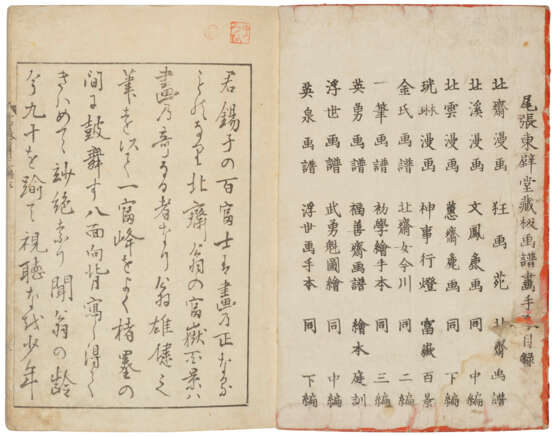 尾張東壁堂藏板画譜畫手本目録
北齋漫画 狂画苑 北齋画譜
北溪漫画 文鳳麁画 同 中編
北雲漫画 蕙齋麁画 同 下編
珖琳漫画 神事行燈 富嶽百景
金氏画譜 北齋女今川 同 二編
一筆画譜 初學繪手本 同 三編
英勇画譜 福善齋画譜 繪本庭訓
浮世画譜 武勇魁圖繪 同 中編
英泉画譜 浮世画手本 同 下編
君錫子の百富士ハ畫乃正なる
ものなり北齋翁の富嶽百景ハ
畫乃奇なる者なり翁雄健之
筆を以て一富峰をよく楮墨の
間に鼓舞す八面向背寫し得て
きハめて妙絶なり聞翁の齢
今九十を踰て視聴なを少年